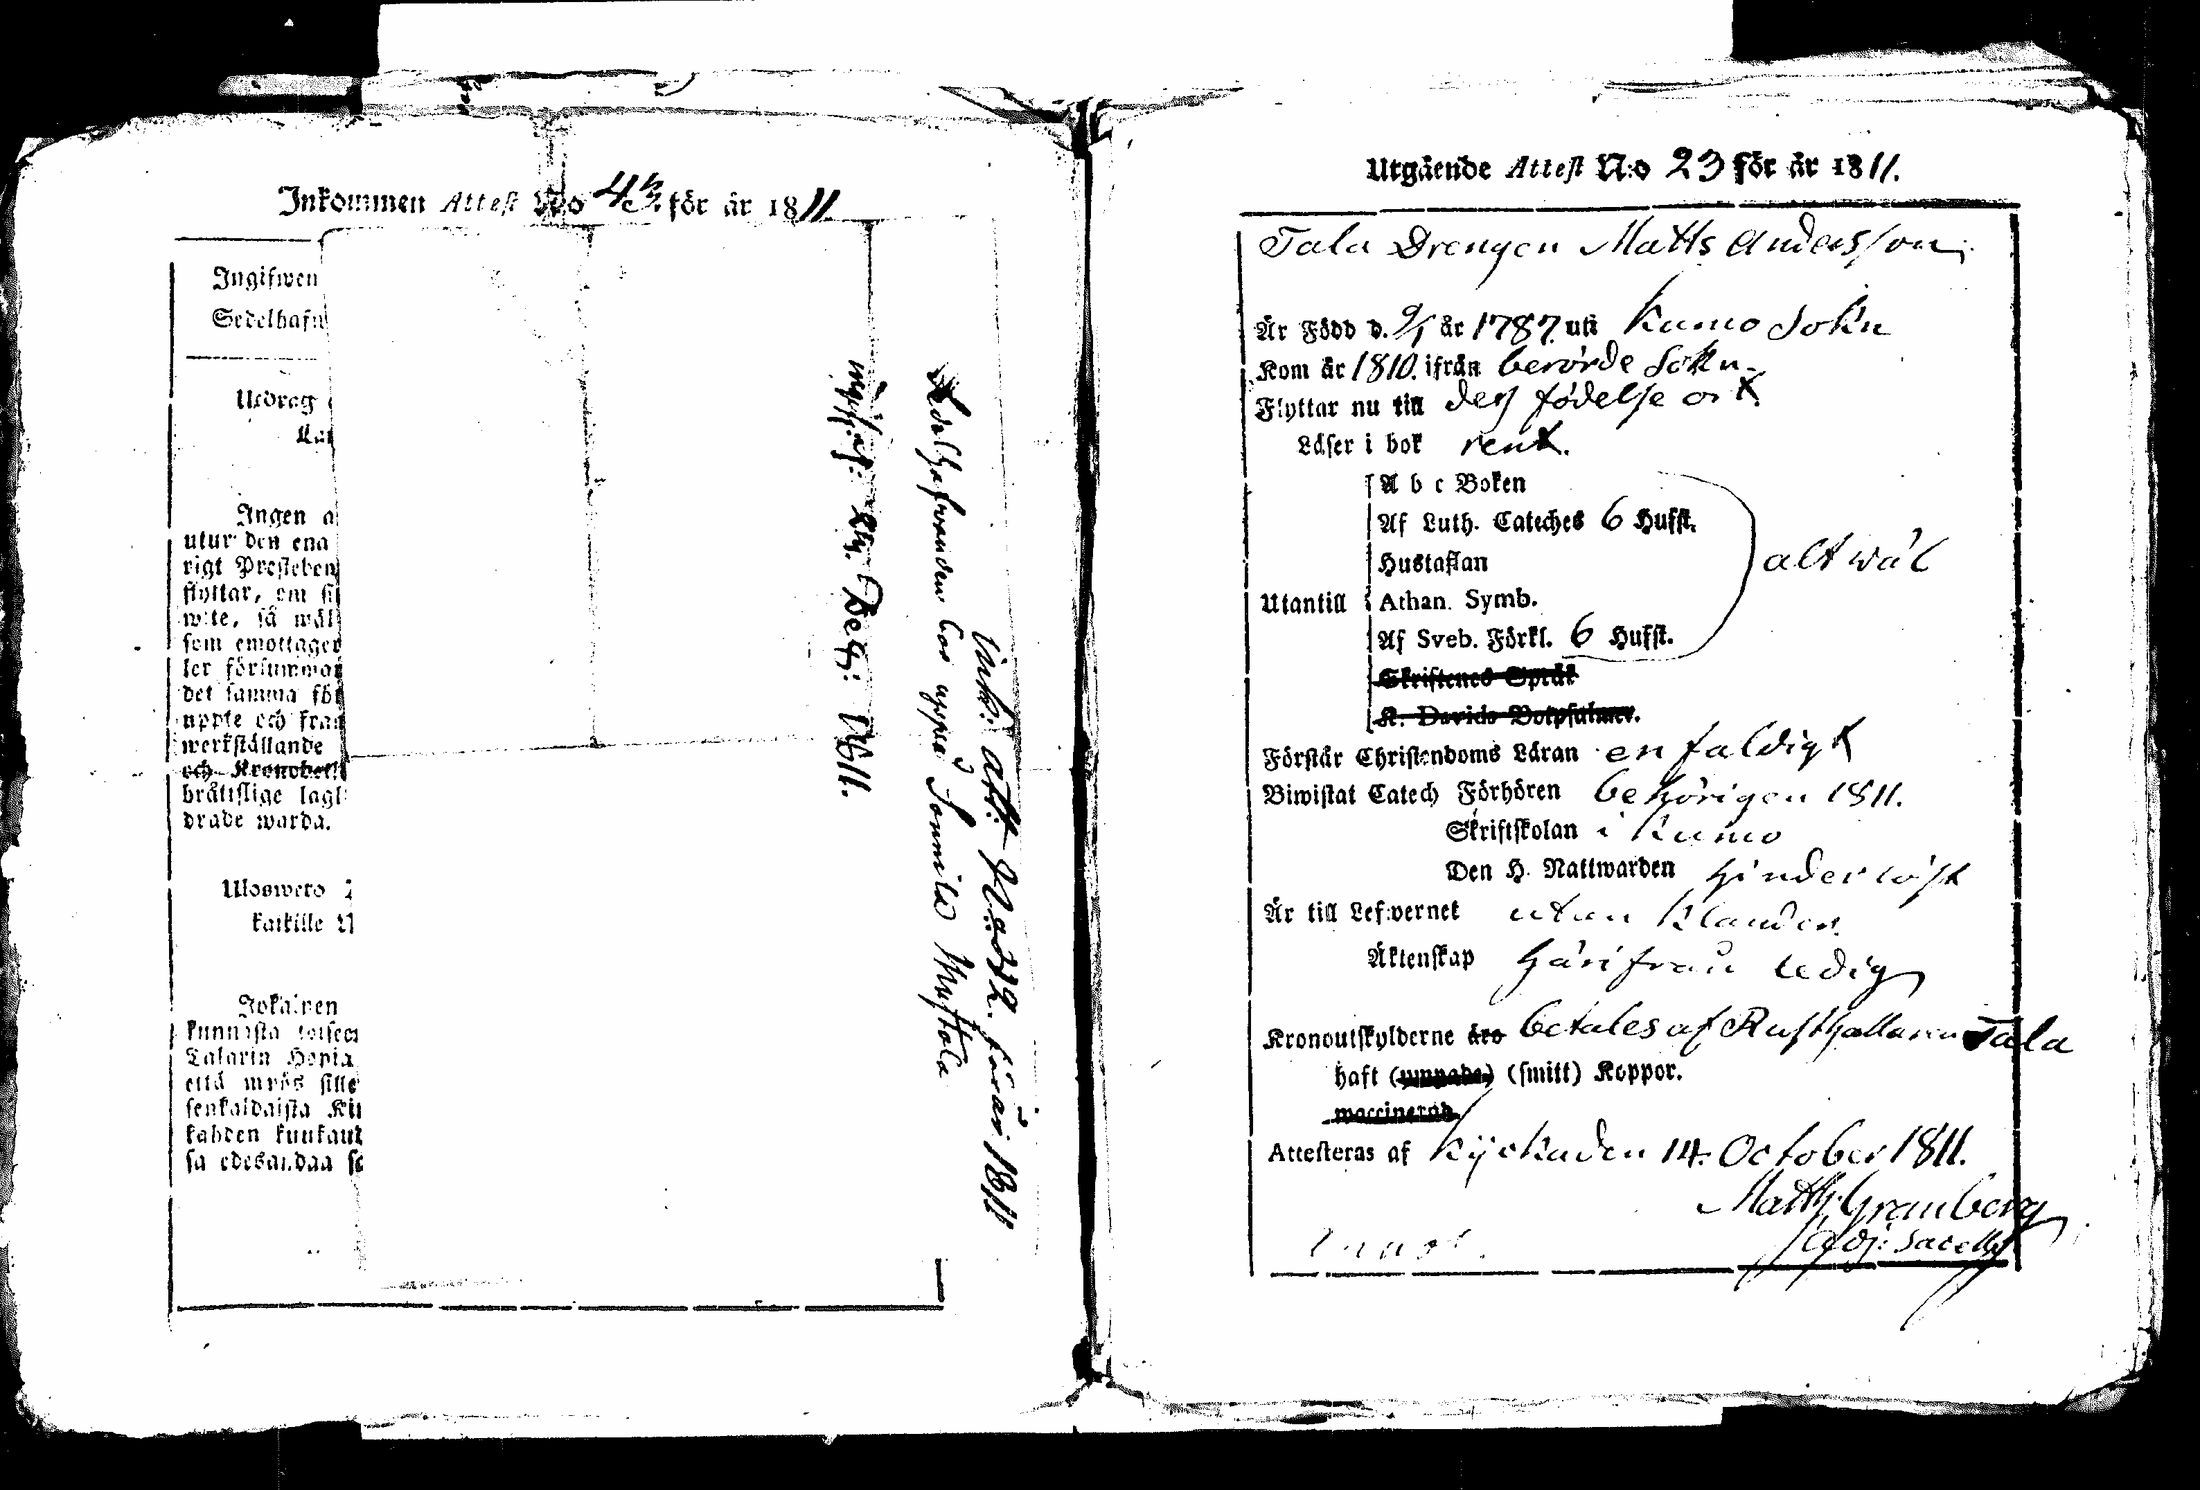 Inkommen Attest N:o 43. för år 1811.
Ingifwen
Sedelhafw
Utdrag
Ingen a
utur den ena
rigt Presteben
flyttar, om si
wite, så wäl
som emottager
ler försummar
det samma för
uppte och fram
werkställande
och Kronobet
bråttslige lagl
drade warda.
Ulosweto
kaikille
Jokainen
kunnasta
Talarin Hopia
että myös sille
senkaldaisista Kir
kahden kuukaut
sa edesandaa se
Sedelhafvanden bor uppå Sonnila Mustola
Ink: att: No 42. för år 1811
Utgående Attest N:o 23 för år 1811.
Tala Drengen Matts Andersson
Är Född d. 9/1 år 1787. uti Kumo Sokn
Kom år 1810. ifrån berörde Sokn.
Flyttar nu till dess födelse ort.
Läser i bok rent.
Utantill
A b c Boken
Af Luth. Cateches 6 Hufst.
Hustaflan
Athan. Symb.
Af Sveb. Förkl. 6 Hufst.
alt wäl
Skriftenes Språk
K. Davids Botpsalmer.
Förstår Christendoms Läran enfaldigt
Biwistat Catech Förhören behörigen 1811.
Skriftskolan i Kumo
Den H. Nattwarden hinderlöst
Är till Lefvernet utan klander.
Äktenskap härifrån ledig
Kronoutskylderne äro betales af Rusthållaren Tala
haft (ympade) (smitt) Koppor.
waccinerad
Attesteras af Kjulo den 14. October 1811.
Matth. Granberg
Adj: Sacell: